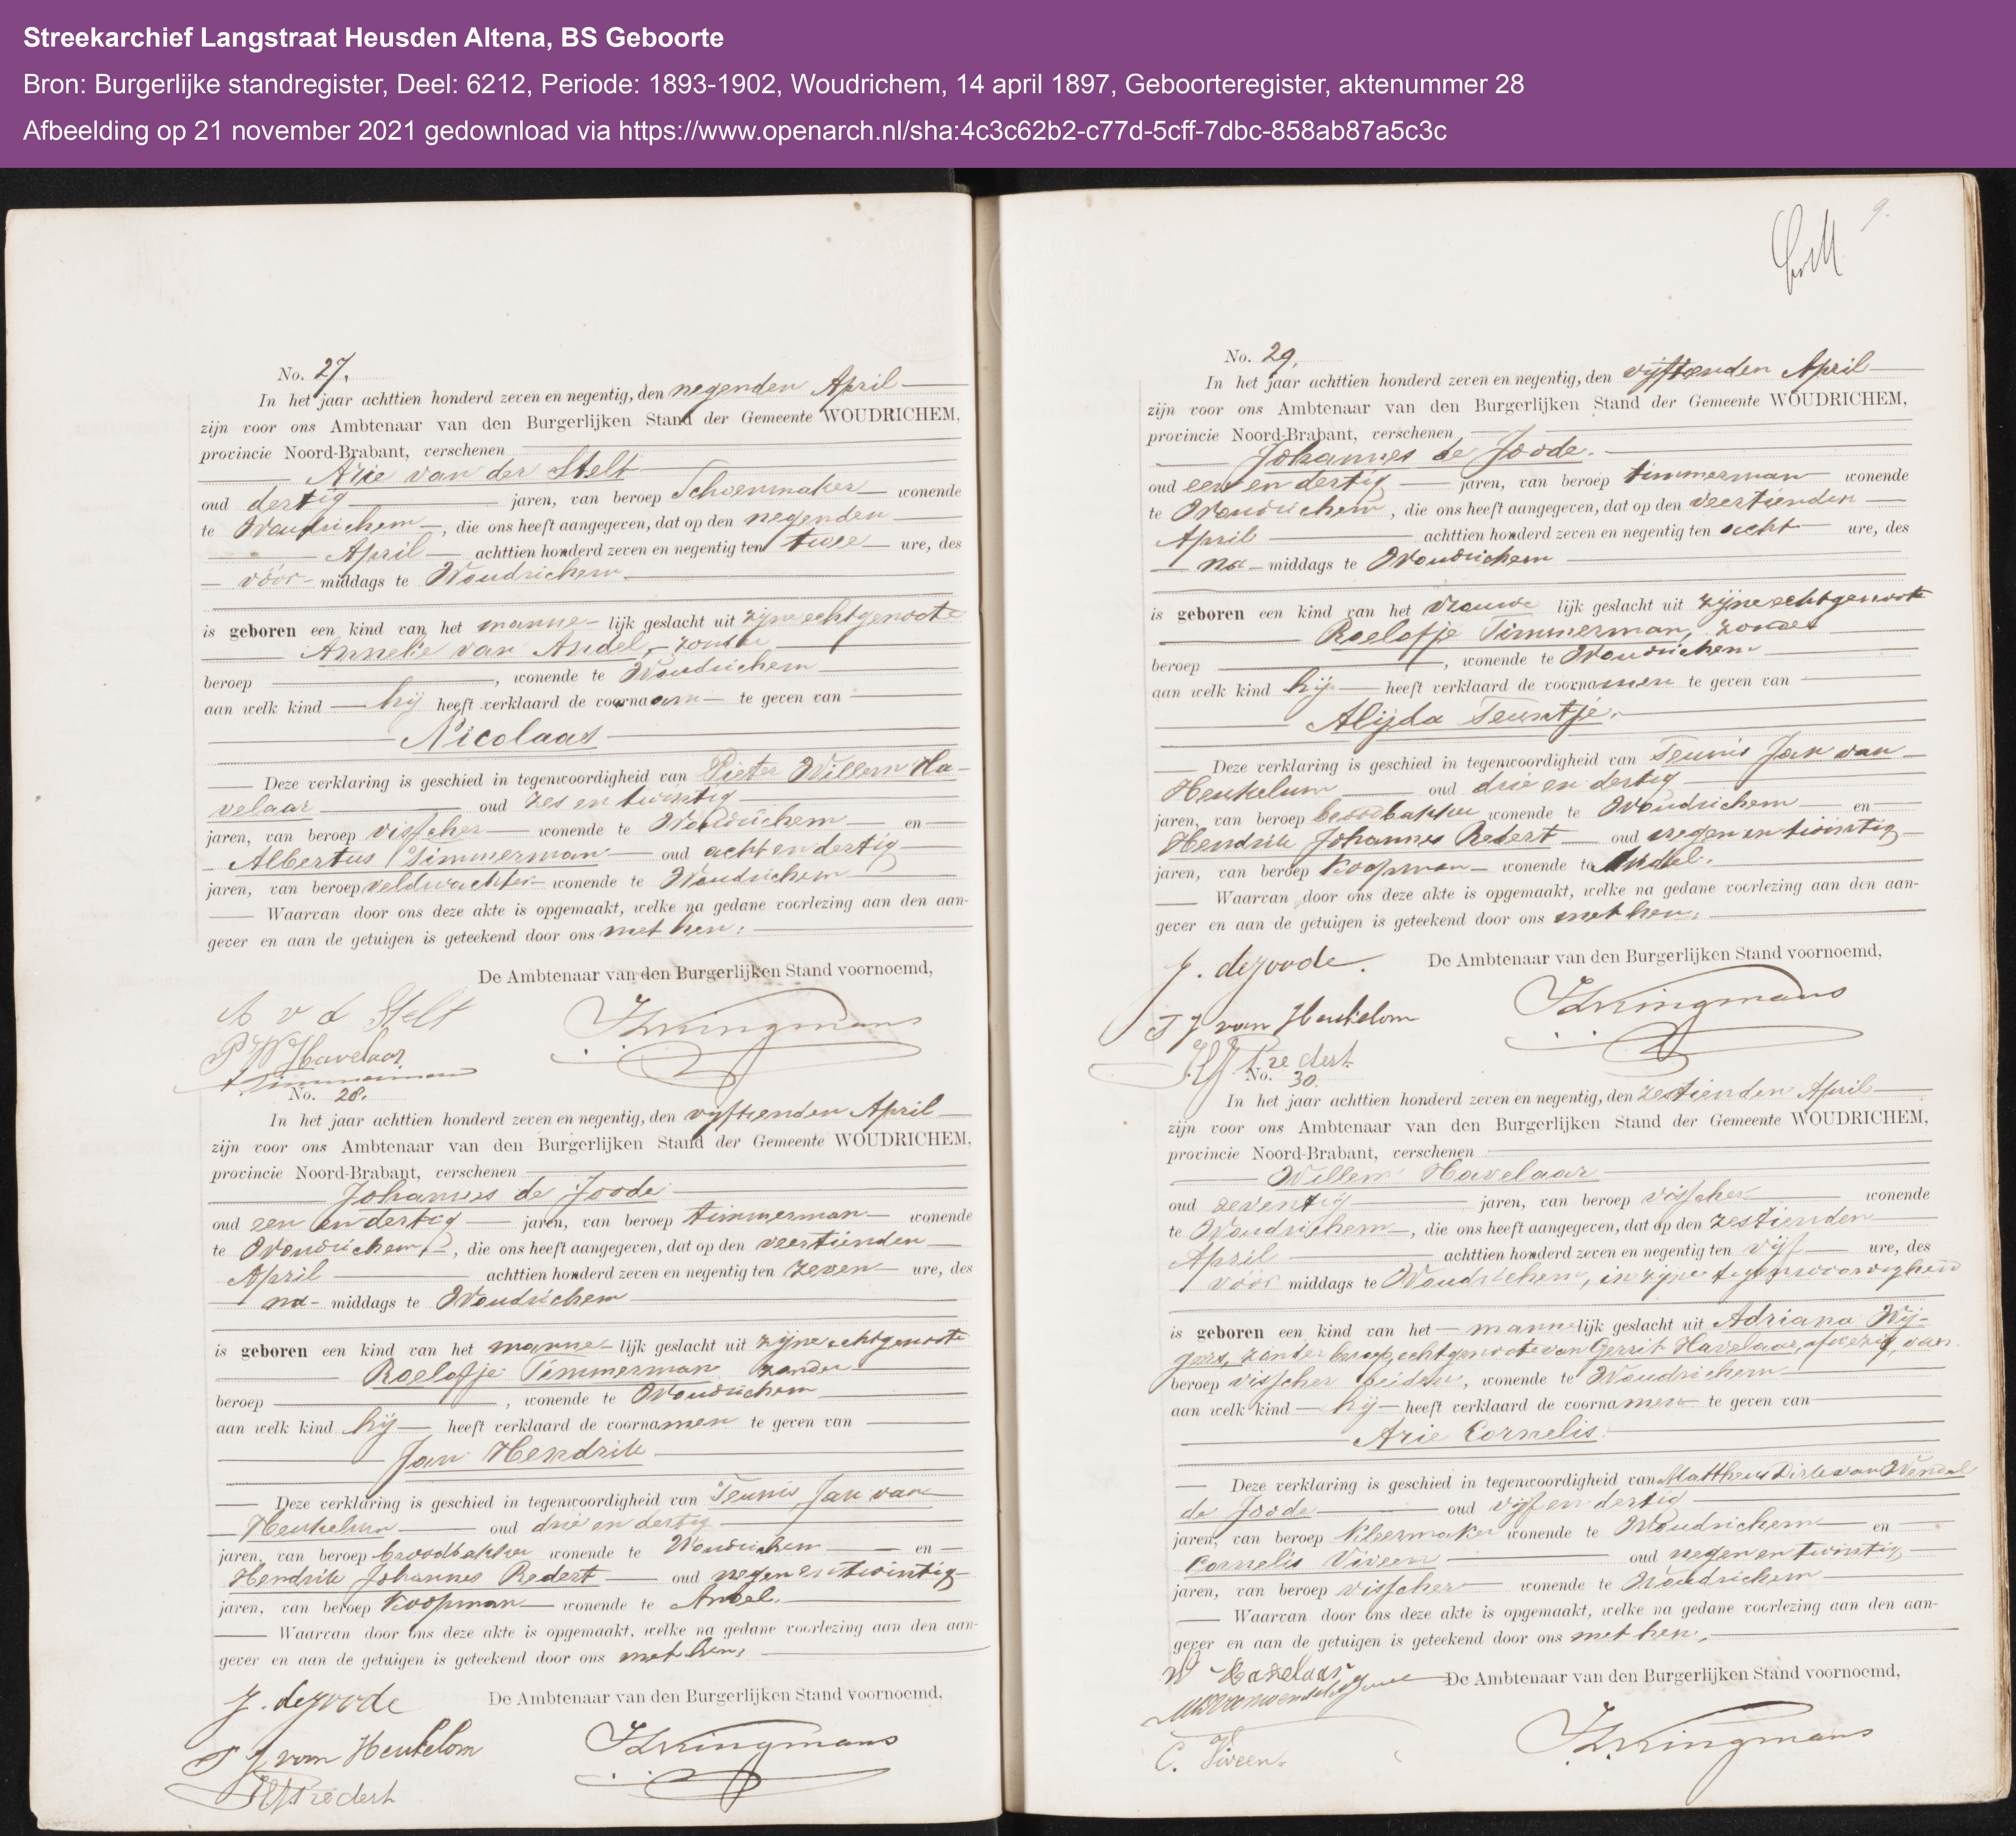 Streekarchief Langstraat Heusden Altena, BS Geboorte
Bron: Burgerlijke standregister, Deel: 6212, Periode: 1893-1902, Woudrichem, 14 april 1897, Geboorteregister, aktenummer 28
Afbeelding op 21 november 2021 gedownload via https://www.openarch.nl/sha:4c3c62b2-c77d-5cff-7dbc-858ab87a5c3c
No. 27.
In het jaar achttien honderd zeven en negentig, den negenden April
zijn voor ons Ambtenaar van den Burgerlijken Stand der Gemeente WOUDRICHEM,
provincie Noord-Brabant, verschenen
Arie van der Stelt
oud dertig jaren, van beroep Schoenmaker wonende
te Woudrichem, die ons heeft aangegeven, dat op den negenden
April achttien honderd zeven en negentig ten twee ure, des
vóór middags te Woudrichem
is geboren een kind van het manne lijk geslacht uit zijne echtgenoote
Anneke van Andel, zonder
beroep , wonende te Woudrichem
aan welk kind hij heeft verklaard de voornaam te geven van
Nicolaas
Deze verklaring is geschied in tegenwoordigheid van Pieter Willem Ha-
velaar oud zes en twintig
jaren, van beroep visscher wonende te Woudrichem en
Albertus Timmerman oud acht en dertig
jaren, van beroep veldwachter wonende te Woudrichem
Waarvan door ons deze akte is opgemaakt, welke na gedane voorlezing aan den aan-
gever en aan de getuigen is geteekend door ons met hen.
De Ambtenaar van den Burgerlijken Stand voornoemd,
A v d Stelt
P W Havelaar
A. Timmerman
No. 28.
In het jaar achttien honderd zeven en negentig, den vijftienden April
zijn voor ons Ambtenaar van den Burgerlijken Stand der Gemeente WOUDRICHEM,
provincie Noord-Brabant, verschenen
Johannes de Joode
oud een en dertig jaren, van beroep timmerman wonende
te Woudrichem, die ons heeft aangegeven, dat op den veertienden
April achttien honderd zeven en negentig ten zeven ure, des
na middags te Woudrichem
is geboren een kind van het manne lijk geslacht uit zijne echtgenoote
Roelofje Timmerman zonder
beroep , wonende te Woudrichem
aan welk kind hij heeft verklaard de voornamen te geven van
Jan Hendrik
Deze verklaring is geschied in tegenwoordigheid van Teunis Jan van
Heukelum oud drie en dertig
jaren, van beroep broodbakker wonende te Woudrichem en
Hendrik Johannes Redert oud negen en twintig
jaren, van beroep Koopman wonende te Andel.
Waarvan door ons deze akte is opgemaakt, welke na gedane voorlezing aan den aan-
gever en aan de getuigen is geteekend door ons met hen.
J. de Joode De Ambtenaar van den Burgerlijken Stand voornoemd,
T J van Heukelom
HJ Redert
9.
No. 29.
In het jaar achttien honderd zeven en negentig, den vijftienden April
zijn voor ons Ambtenaar van den Burgerlijken Stand der Gemeente WOUDRICHEM,
provincie Noord-Brabant, verschenen
Johannes de Joode.
oud een en dertig jaren, van beroep timmerman wonende
te Woudrichem, die ons heeft aangegeven, dat op den veertienden
April achttien honderd zeven en negentig ten acht ure, des
na middags te Woudrichem
is geboren een kind van het vrouwe lijk geslacht uit zijne echtgenoote
Roelofje Timmerman, zonder
beroep , wonende te Woudrichem
aan welk kind hij heeft verklaard de voornamen te geven van
Alijda Teuntje.
Deze verklaring is geschied in tegenwoordigheid van Teunis Jan van
Heukelum oud drie en dertig
jaren, van beroep broodbakker wonende te Woudrichem en
Hendrik Johannes Redert oud negen en twintig
jaren, van beroep Koopman wonende te Andel.
Waarvan door ons deze akte is opgemaakt, welke na gedane voorlezing aan den aan-
gever en aan de getuigen is geteekend door ons met hen.
J. de Joode. De Ambtenaar van den Burgerlijken Stand voornoemd,
T J van Heukelom
HJ Redert
No. 30.
In het jaar achttien honderd zeven en negentig, den zestienden April
zijn voor ons Ambtenaar van den Burgerlijken Stand der Gemeente WOUDRICHEM,
provincie Noord-Brabant, verschenen
Willem Havelaar
oud zeventig jaren, van beroep visscher wonende
te Woudrichem, die ons heeft aangegeven, dat op den zestienden
April achttien honderd zeven en negentig ten vijf ure, des
vóór middags te Woudrichem, in zijne tegenwoordigheid
is geboren een kind van het mannelijk geslacht uit Adriana Wij-
gers, zonder beroep, echtgenoote van Gerrit Havelaar, afwezig, van
beroep visscher beiden, wonende te Woudrichem
aan welk kind hij heeft verklaard de voornamen te geven van
Arie Cornelis
Deze verklaring is geschied in tegenwoordigheid van Mattheus Dirk van Wendel
de Joode oud vijf en dertig
jaren, van beroep kleermaker wonende te Woudrichem en
Cornelis Viveen oud negen en twintig
jaren, van beroep visscher wonende te Woudrichem
Waarvan door ons deze akte is opgemaakt, welke na gedane voorlezing aan den aan-
gever en aan de getuigen is geteekend door ons met hen.
W Havelaar De Ambtenaar van den Burgerlijken Stand voornoemd,
C. Viveen.